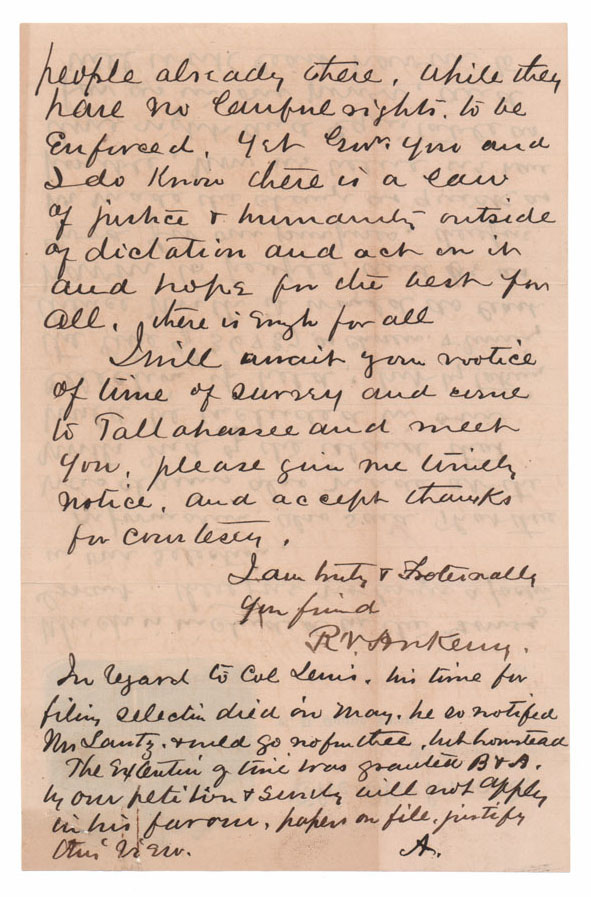 people already there. While they
have no lawful rights. to be
Enforced. Yet Gov. you and
I do Know there is a law
of justice & humanity outside
of dictation and act on it
and hope for the best for
all. there is Engh for all
I will await your notice
of time of survey and come
to Tallahassee and meet
you. please give me timely
notice. and accept thanks
for courtesy.
I am truly & Fraternally
Your friend
R.V. Ankeny.
In regard to Col Lewis. his time for
filing selection died in May. he so notified
Mr Lantz. & could go no further. but homstead
The Extention of time was granted B & A.
by our petition & will not apply
in his favour. papers on file. justify
this view. A.